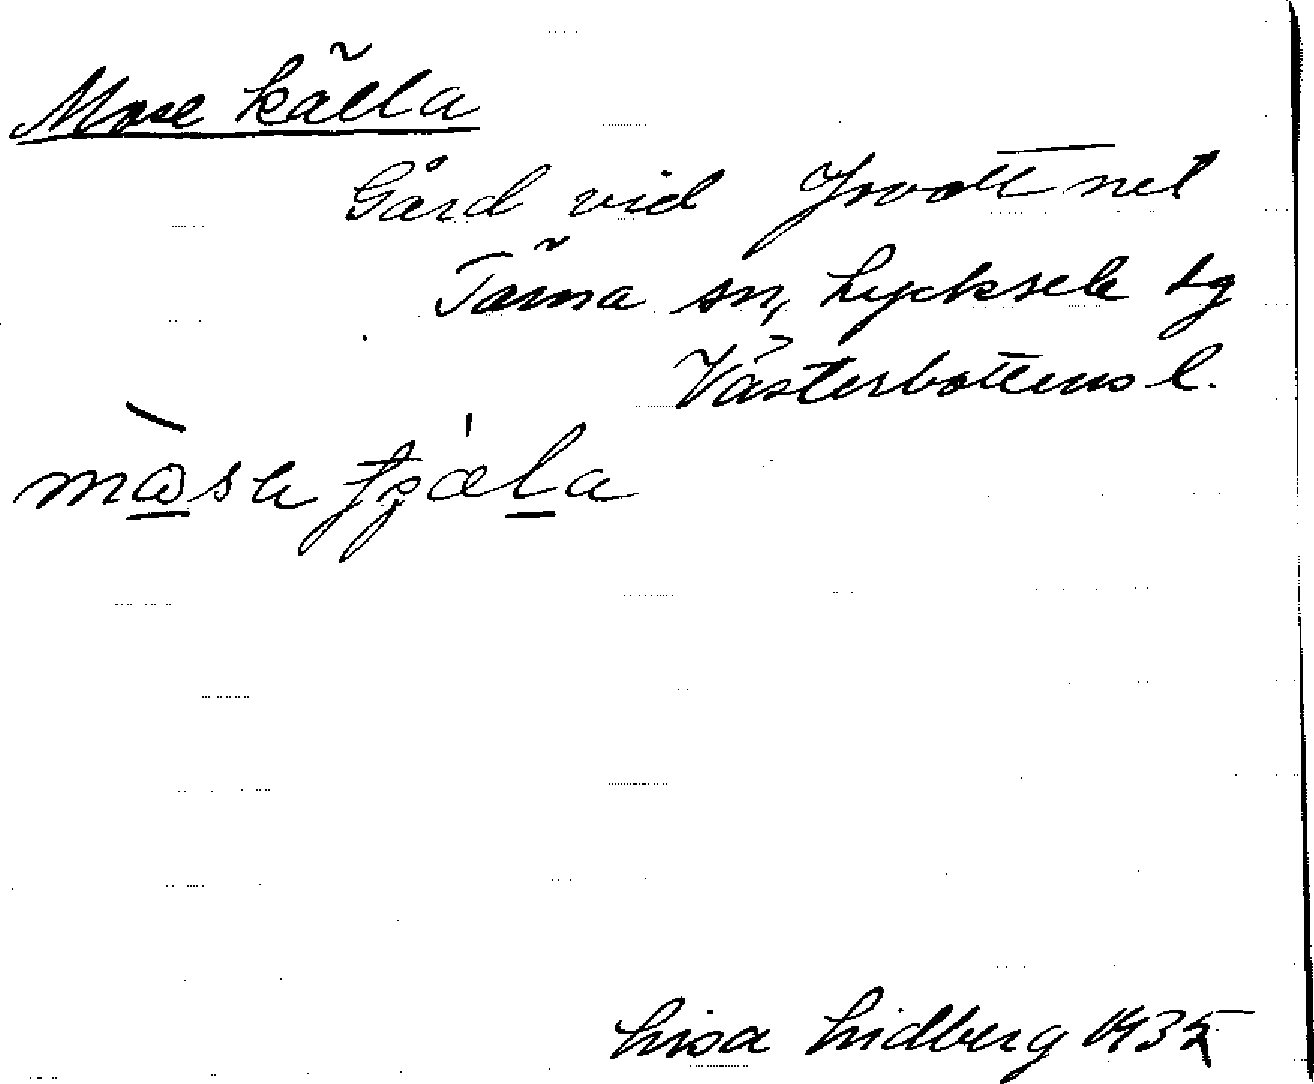 Mose källa
Gård vid Jovattnet
Tärna sn, Lycksele lg
Västerbottens l.
Lisa Lidberg 1935